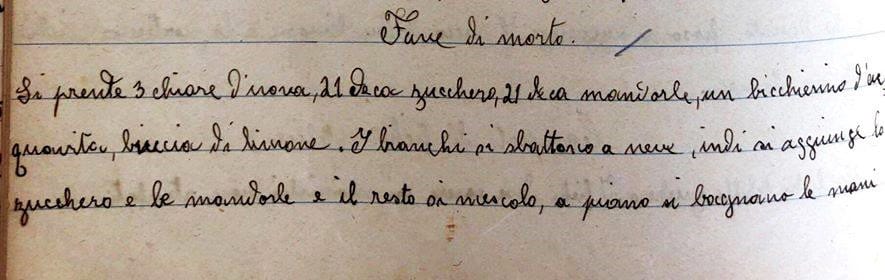 Fave di morto.
Si prende 3 chiare d'uova, 21 deca zucchero, 21 deca mandorle, un bicchierino d'ac,
quavita, buccia di limone. I bianchi si sbattono a neve, indi si aggiunge lo
zucchero e le mandorle e il resto si mescola, a piano si bagnano le mani